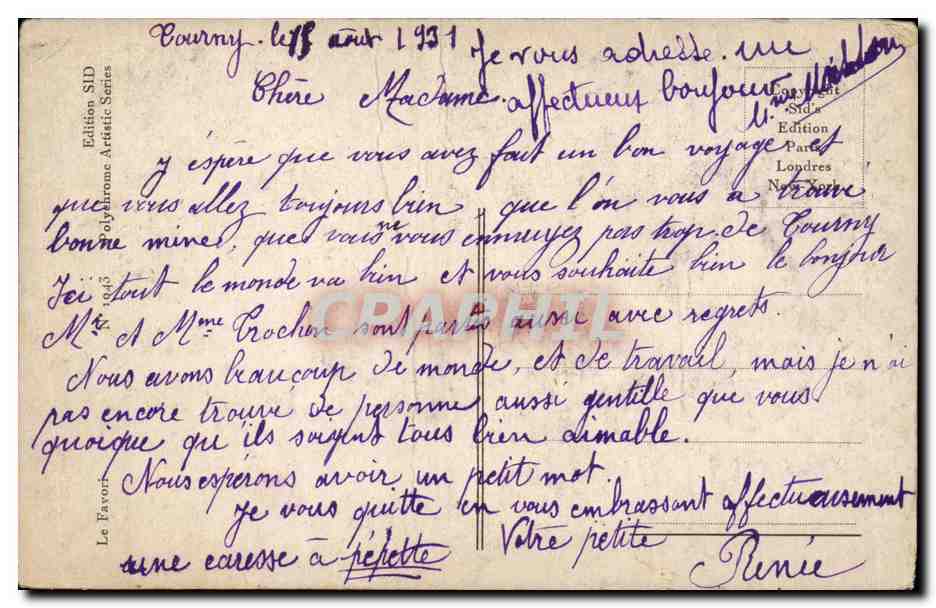 Tourny. le 15 août 1931
Je vous adresse. un
affectueux bonjour
Mme
Chère Madame.
Copyright
Sid's
Edition
Paris
Londres
New-York
J'éspère que vous avez fait un bon voyage, et
que vous allez toujours bien, que l'on vous a trouvé
bonne mine, que vous ne vous ennuyez pas trop. de Tourny
Ici tout le monde va bien et vous souhaite bien le bonjour
Mr et Mme Crochon sont partis aussi avec regrets.
Nous avons beaucoup de monde, et de travail, mais je n'ai
pas encore trouvé de personne aussi gentille que vous
quoique qu'ils soient tous bien aimable.
Nous espérons avoir un petit mot.
Je vous quitte en vous embrassant affectueusement
Votre petite
une caresse à pépette
Renée
Edition SID
Polychrome Artistic Series
N. 1943
Le Favori
CPAPHIL